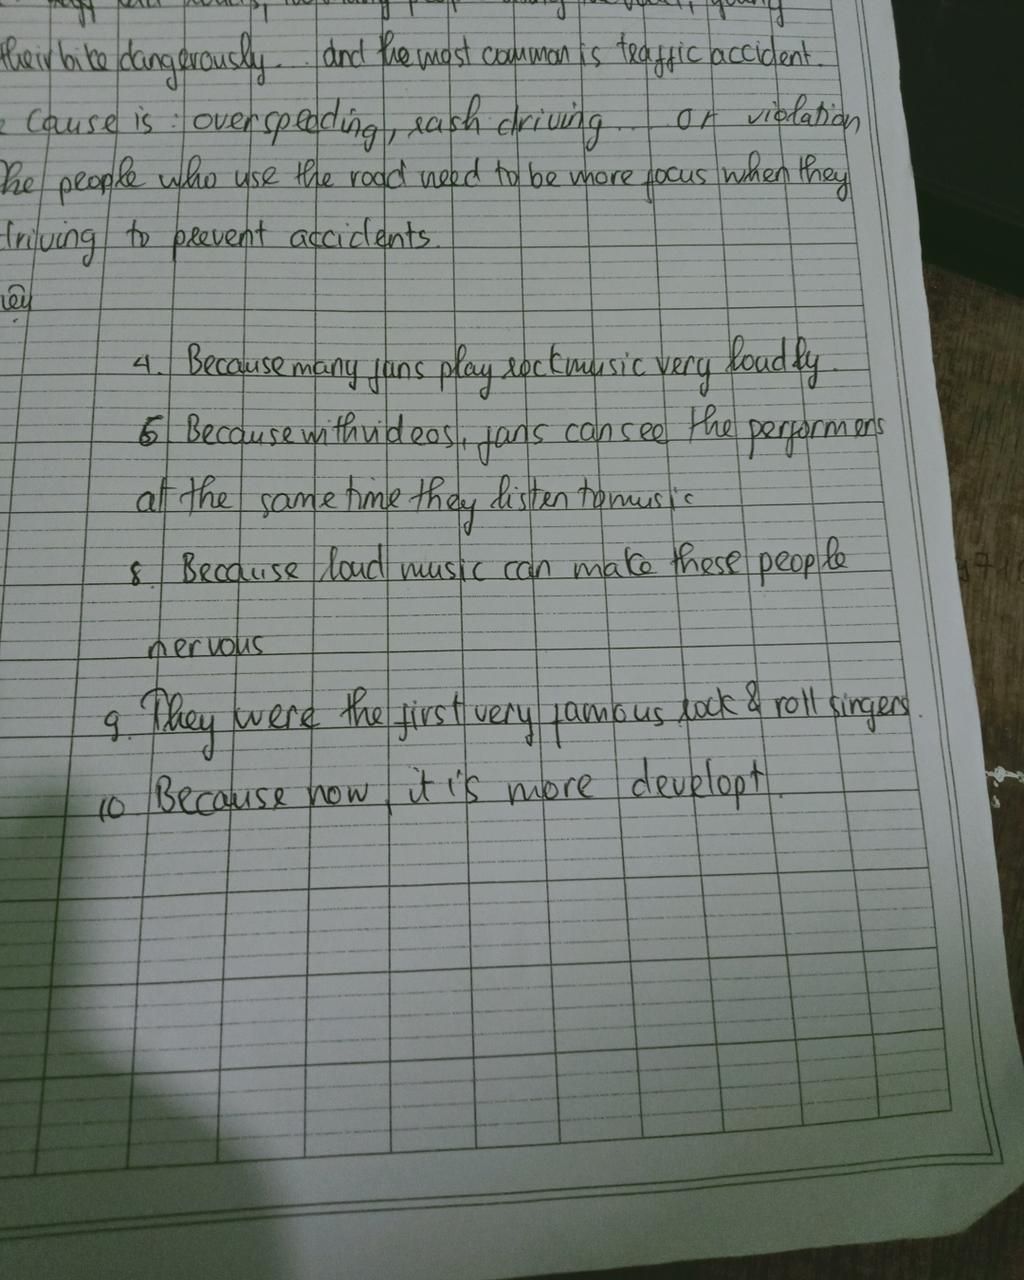 their bike dangerously... and the most common is traffic accident.
cause is : overspeeding, rash driving... or violation
the people who use the road need to be more focus when they
driving to prevent accidents.
4. Because many fans play rock music very loudly.
5 Because with videos, fans can see the performers
at the same time they listen to music
8. Because loud music can make these people
nervous
9. They were the first very famous rock & roll singers.
10 Because now, it is more developt.